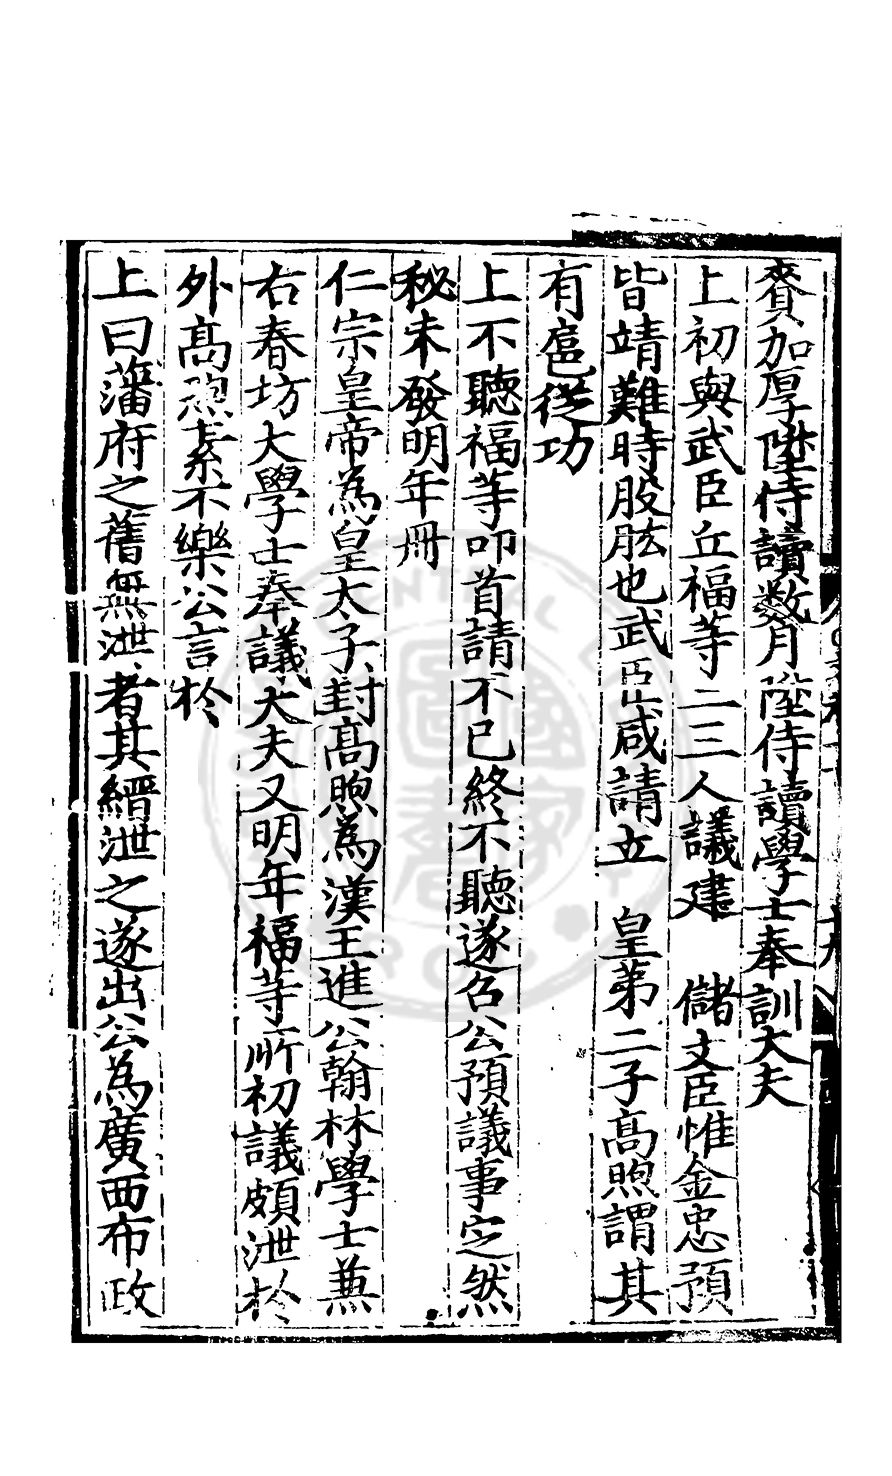 賚加厚陞侍讀数月陞侍讀學士奉訓大夫
上初與武臣丘福等二三人議建　儲文臣惟金忠預
皆靖難時股肱也武臣咸請立　皇第二子高煦謂其
有扈從功
上不聽福等叩首請不已終不聽遂召公預議事定然
秘未發明年冊
仁宗皇帝為皇太子封高煦為漢王進公翰林學士兼
右春坊大學士奉議大夫又明年福等所初議頗泄於
外高煦素不樂公言於
上曰藩府之舊無泄者其縉泄之遂出公為廣西布政